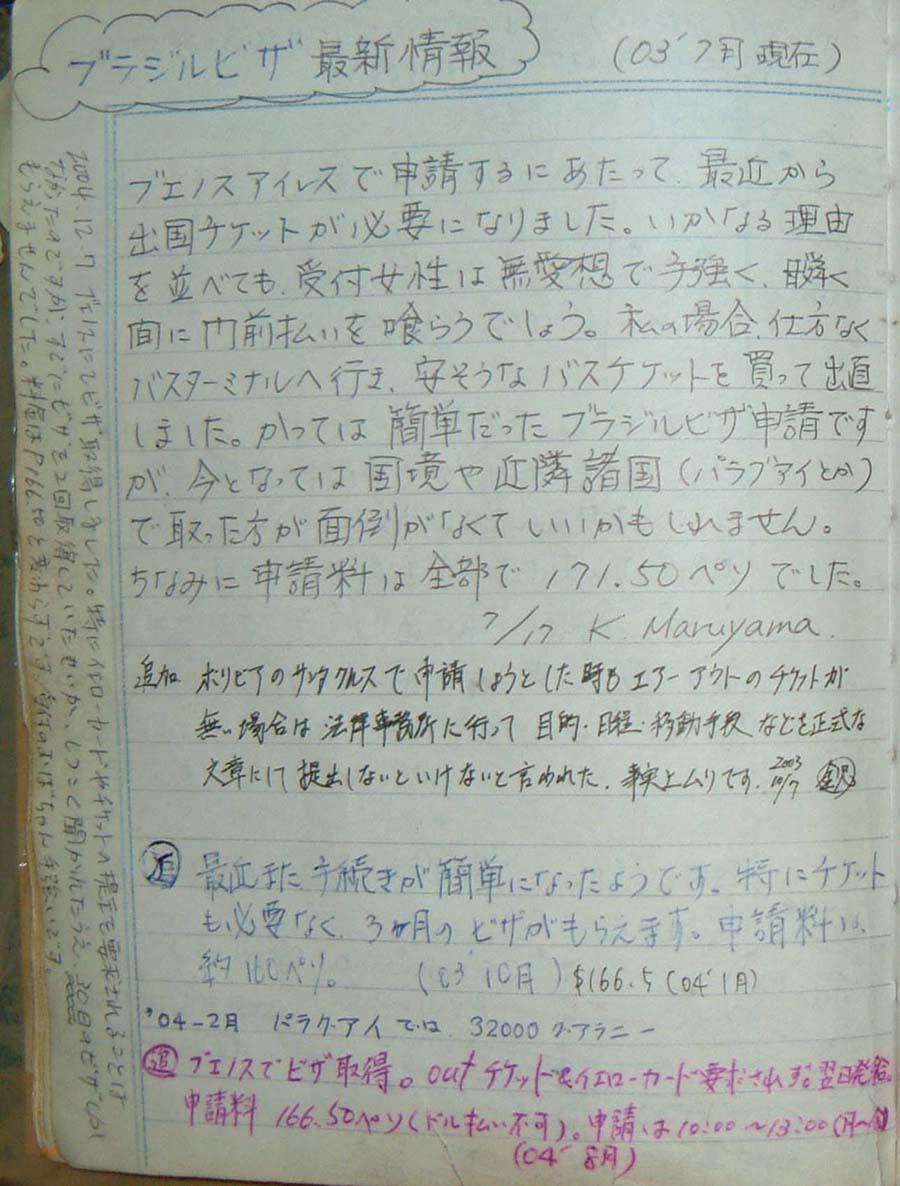 ブラジルビザ 最新情報 (03' 7月 現在)
ブエノスアイレスで申請するにあたって、最近から
出国チケットが必要になりました。いかなる理由
を並べても、受付女性は無愛想で手強く、瞬く
間に門前払いを喰らうでしょう。私の場合、仕方なく
バスターミナルへ行き、安そうなバスチケットを買って出直
しました。かつては簡単だったブラジルビザ申請です
が、今となっては国境や近隣諸国(パラグアイとか)
で取った方が面倒がなくていいかもしれません。
ちなみに申請料は全部で171.50ペソでした。
7/17 K. Maruyama.
追加 ボリビアのサンタクルスで申請しようとした時もエアーアウトのチケットが
無い場合は法律事務所に行って目的・日程・移動手段などを正式な
文章にて提出しないといけないと言われた。事実上ムリです。2003 10/7
追 最近また手続きが簡単になったようです。特にチケット
も必要なく、3ヶ月のビザがもらえます。申請料は、
約160ペソ。 (03' 10月) $166.5 (04' 1月)
'04-2月 パラグアイでは、32000グアラニー
追 ブエノスでビザ取得。outチケット&イエローカード要求されず。翌日発給。
申請料 166.50ペソ(ドル払い不可)。申請は10:00~13:00(月~金)
(04' 8月)
2004.12.7 ブエノスにてビザ取得しました。特にイエローカードやチケットの提示を要求されることは
なかったのですが、すでにビザを2回取得していたせいか、しつこく聞かれたうえ、30日のビザしか
もらえませんでした。料金はP166.50と変わらずです。